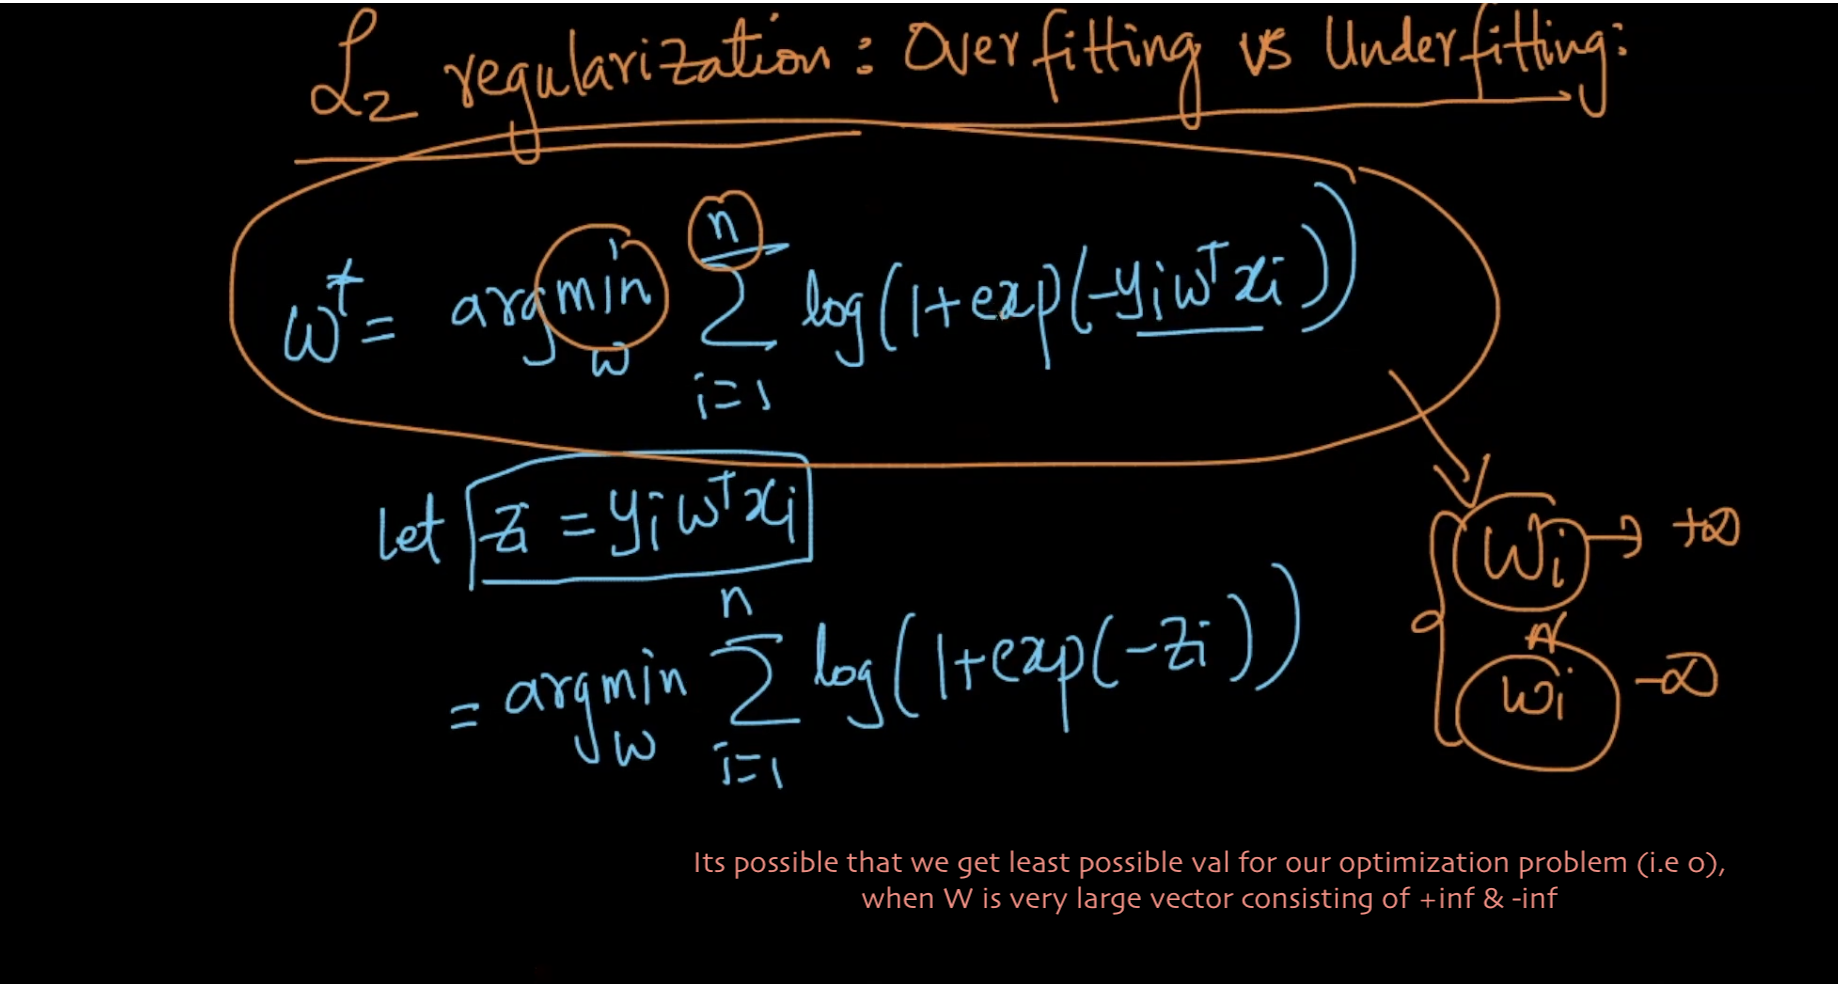 L₂ regularization: Overfitting vs Underfitting:
w* = argmin_w Σ_{i=1}^{n} log(1+exp(-yᵢwᵀxᵢ))
let zᵢ = yᵢwᵀxᵢ
wᵢ → +∞
= argmin_w Σ_{i=1}^{n} log(1+exp(-zᵢ))
wᵢ -∞
Its possible that we get least possible val for our optimization problem (i.e 0),
when W is very large vector consisting of +inf & -inf